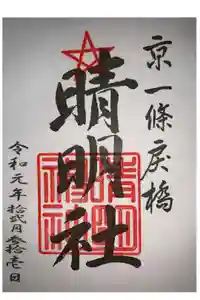 京一條戻橋
晴明社
令和元年拾弐月参拾壱日
晴明神社